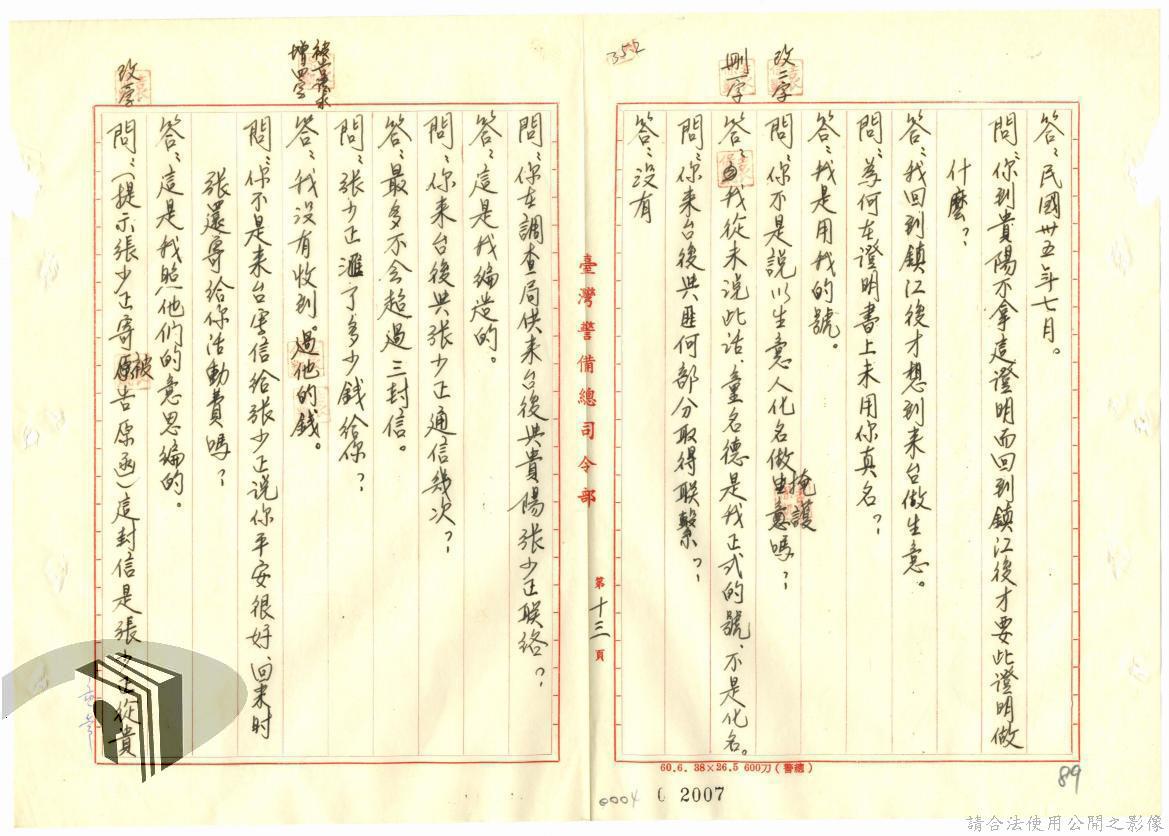 答：民國卅五年七月。
問：你到貴陽不拿這證明而回到鎮江後才要此證明做
什麼？
答：我回到鎮江後才想到來台做生意。
問：為何在證明書上未用你真名？
答：我是用我的號。
改二字
問：你不是說以生意人化名做掩護嗎？
刪一字
答：我從未說此话，童名德是我正式的號，不是化名。
問：你来台後与匪何部分取得联繫？
答：没有
352
臺灣警備總司令部
第十三頁
問：你在調查局供来台後與貴陽張少正联络？
答：這是我編造的。
問：你来台後與張少正通信幾次？
答：最多不会超過三封信。
問：張少正滙了多少錢給你？
增四字
答：我没有收到過他的錢。
問：你不是来台写信給張少正说你平安很好，回来时
張還寄給你活動費嗎？
答：這是我照他们的意思编的。
改一字
問：（提示張少正寄被告原函）這封信是張少正從貴
60.6. 38×26.5 600刀（警總）
0004
2007
89
請合法使用公開之影像